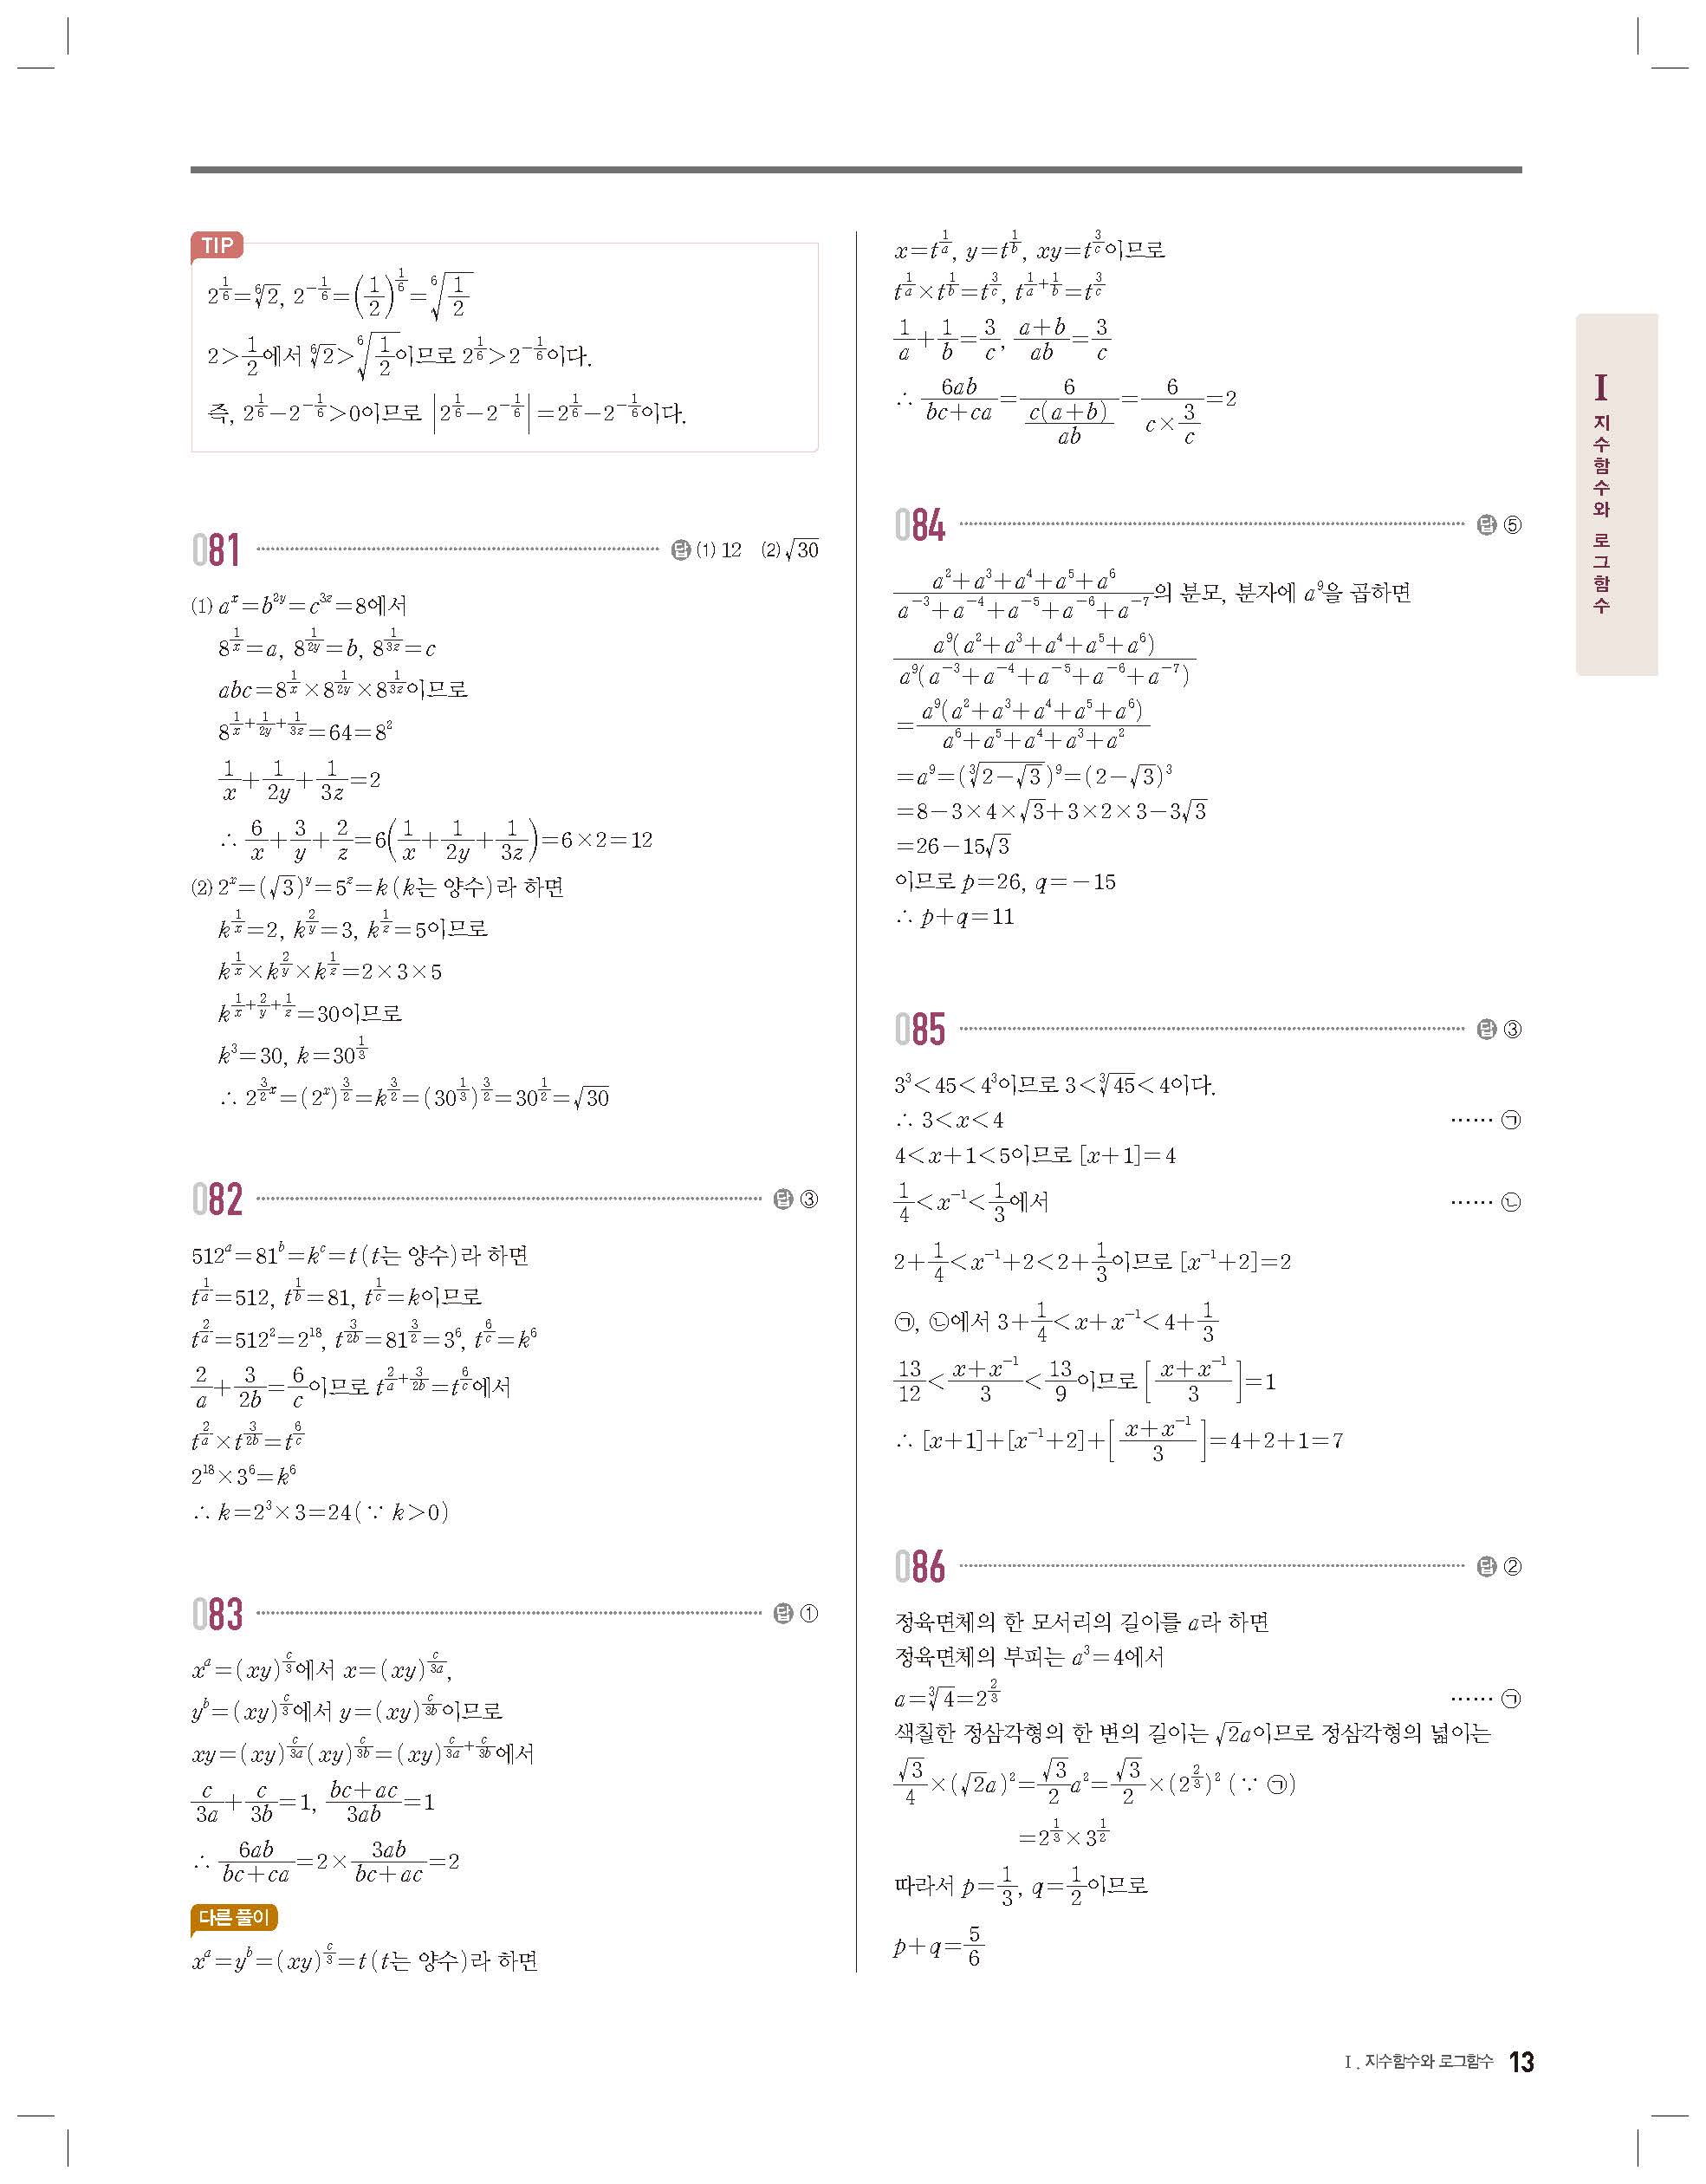 TIP
2^{1/6}=⁶√2, 2^{-1/6}=(1/2)^{1/6}=⁶√(1/2)
2>1/2에서 ⁶√2>⁶√(1/2)이므로 2^{1/6}>2^{-1/6}이다.
즉, 2^{1/6}-2^{-1/6}>0이므로 |2^{1/6}-2^{-1/6}|=2^{1/6}-2^{-1/6}이다.
081 답 (1) 12 (2) √30
(1) a^x=b^{2y}=c^{3z}=8에서
8^{1/x}=a, 8^{1/2y}=b, 8^{1/3z}=c
abc=8^{1/x}×8^{1/2y}×8^{1/3z}이므로
8^{1/x+1/2y+1/3z}=64=8²
1/x+1/2y+1/3z=2
∴ 6/x+3/y+2/z=6(1/x+1/2y+1/3z)=6×2=12
(2) 2^x=(√3)^y=5^z=k (k는 양수)라 하면
k^{1/x}=2, k^{2/y}=3, k^{1/z}=5이므로
k^{1/x}×k^{2/y}×k^{1/z}=2×3×5
k^{1/x+2/y+1/z}=30이므로
k³=30, k=30^{1/3}
∴ 2^{(3/2)x}=(2^x)^{3/2}=k^{3/2}=(30^{1/3})^{3/2}=30^{1/2}=√30
082 답 ③
512^a=81^b=k^c=t (t는 양수)라 하면
t^{1/a}=512, t^{1/b}=81, t^{1/c}=k이므로
t^{2/a}=512²=2^{18}, t^{3/2b}=81^{3/2}=3⁶, t^{6/c}=k⁶
2/a+3/2b=6/c이므로 t^{2/a+3/2b}=t^{6/c}에서
t^{2/a}×t^{3/2b}=t^{6/c}
2^{18}×3⁶=k⁶
∴ k=2³×3=24 (∵ k>0)
083 답 ①
x^a=(xy)^{c/3}에서 x=(xy)^{c/3a},
y^b=(xy)^{c/3}에서 y=(xy)^{c/3b}이므로
xy=(xy)^{c/3a}(xy)^{c/3b}=(xy)^{c/3a+c/3b}에서
c/3a+c/3b=1, (bc+ac)/3ab=1
∴ 6ab/(bc+ca)=2×3ab/(bc+ac)=2
다른 풀이
x^a=y^b=(xy)^{c/3}=t (t는 양수)라 하면
x=t^{1/a}, y=t^{1/b}, xy=t^{3/c}이므로
t^{1/a}×t^{1/b}=t^{3/c}, t^{1/a+1/b}=t^{3/c}
1/a+1/b=3/c, (a+b)/ab=3/c
∴ 6ab/(bc+ca)=6/(c(a+b)/ab)=6/(c×3/c)=2
084 답 ⑤
(a²+a³+a⁴+a⁵+a⁶)/(a^{-3}+a^{-4}+a^{-5}+a^{-6}+a^{-7})의 분모, 분자에 a⁹을 곱하면
a⁹(a²+a³+a⁴+a⁵+a⁶)/a⁹(a^{-3}+a^{-4}+a^{-5}+a^{-6}+a^{-7})
=a⁹(a²+a³+a⁴+a⁵+a⁶)/(a⁶+a⁵+a⁴+a³+a²)
=a⁹=(³√(2-√3))⁹=(2-√3)³
=8-3×4×√3+3×2×3-3√3
=26-15√3
이므로 p=26, q=-15
∴ p+q=11
085 답 ③
3³<45<4³이므로 3<³√45<4이다.
∴ 3<x<4 ……㉠
4<x+1<5이므로 [x+1]=4
1/4<x^{-1}<1/3에서 ……㉡
2+1/4<x^{-1}+2<2+1/3이므로 [x^{-1}+2]=2
㉠, ㉡에서 3+1/4<x+x^{-1}<4+1/3
13/12<(x+x^{-1})/3<13/9이므로 [(x+x^{-1})/3]=1
∴ [x+1]+[x^{-1}+2]+[(x+x^{-1})/3]=4+2+1=7
086 답 ②
정육면체의 한 모서리의 길이를 a라 하면
정육면체의 부피는 a³=4에서
a=³√4=2^{2/3} ……㉠
색칠한 정삼각형의 한 변의 길이는 √2a이므로 정삼각형의 넓이는
√3/4×(√2a)²=√3/2 a²=√3/2×(2^{2/3})² (∵ ㉠)
=2^{1/3}×3^{1/2}
따라서 p=1/3, q=1/2이므로
p+q=5/6
Ⅰ 지수함수와 로그함수
Ⅰ. 지수함수와 로그함수 13